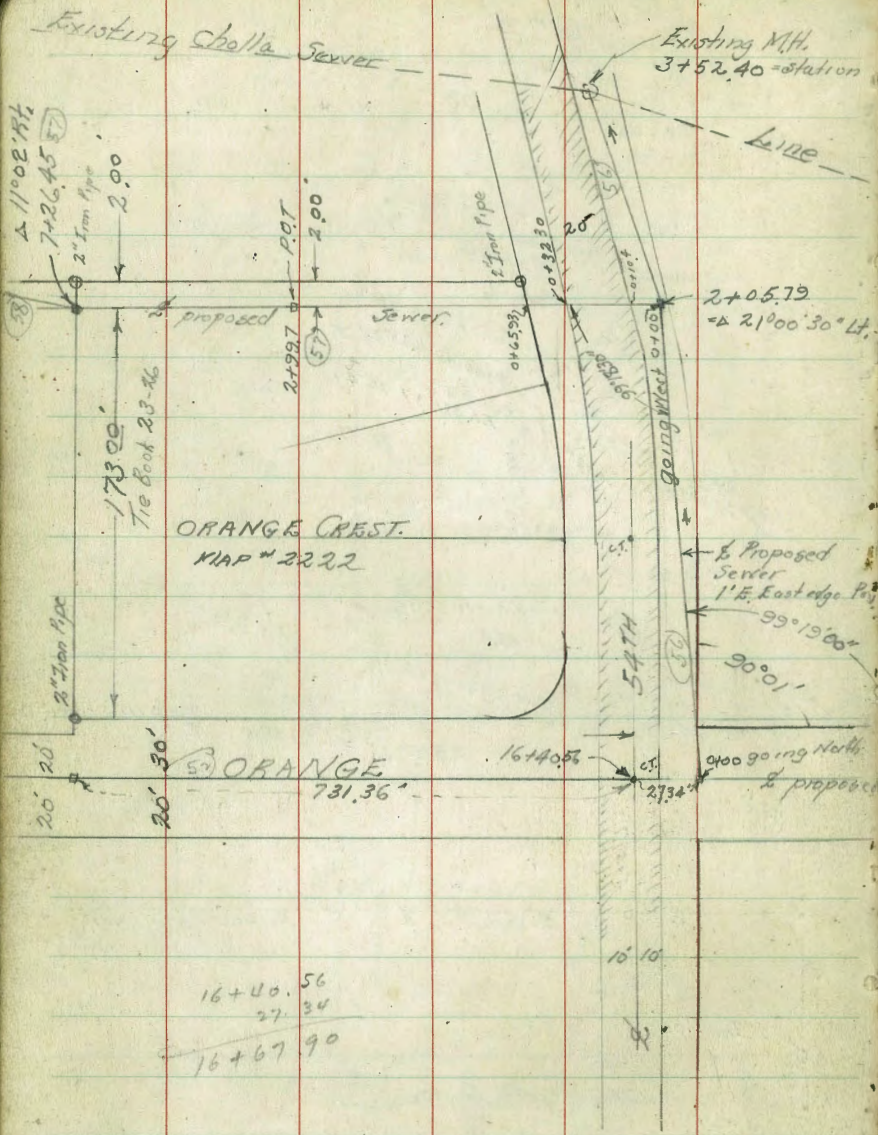 Existing Cholla Sewer
Existing M.H.
3+52.40 = Station
Line
Δ 11°02' Rt.
7+26.45 57
2" Iron Pipe
2.00'
P.O.T
2.00'
2" Iron Pipe
56
20'
0+32.30
0+10+
58
proposed Sewer.
2+99.7
57
0+65.93
0+00
2+05.79
=Δ 21°00'30" Lt.
going West
173.00'
Tie Book 23-26
ORANGE CREST.
MAP # 2222
C.T.
Proposed
Sewer
1' E. East edge
99°19'00"
90°01'
54TH
56
2" Iron Pipe
20' 20'
20' 30'
ORANGE
731.36'
16+40.56
C.T.
27.34'
0+00 going North
10' 10'
16+40.56
27.34
16+67.90